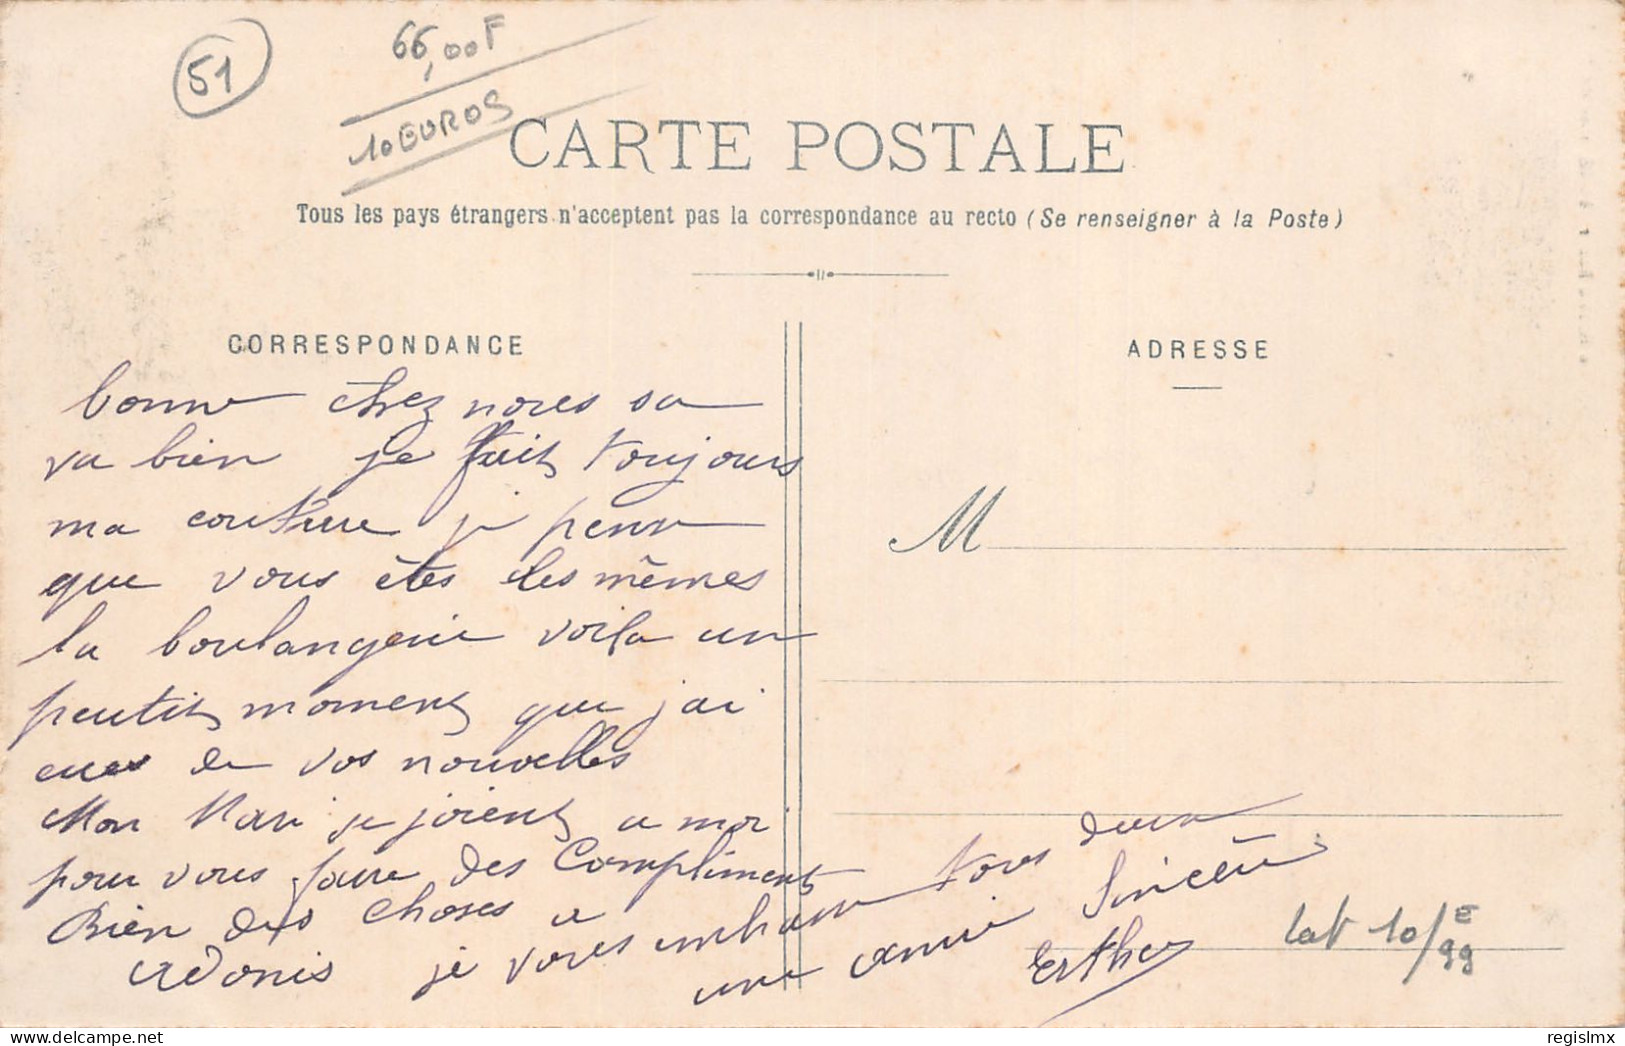 51
66,00F
10 EUROS
CARTE POSTALE
Tous les pays étrangers n'acceptent pas la correspondance au recto (Se renseigner à la Poste)
CORRESPONDANCE
ADRESSE
bonne chez nous sa
va bien je fait toujours
ma couture je pense
que vous êtes les mêmes
la boulangerie voila un
peutit moment que j'ai
eues de vos nouvelles
Mon Mari je joient a moi
pour vous faire des Compliment
Bien des choses a
Adonis je vous embrasse tous deux
une amie Sincère
Esther
M
lot 10/E
99
regislmx